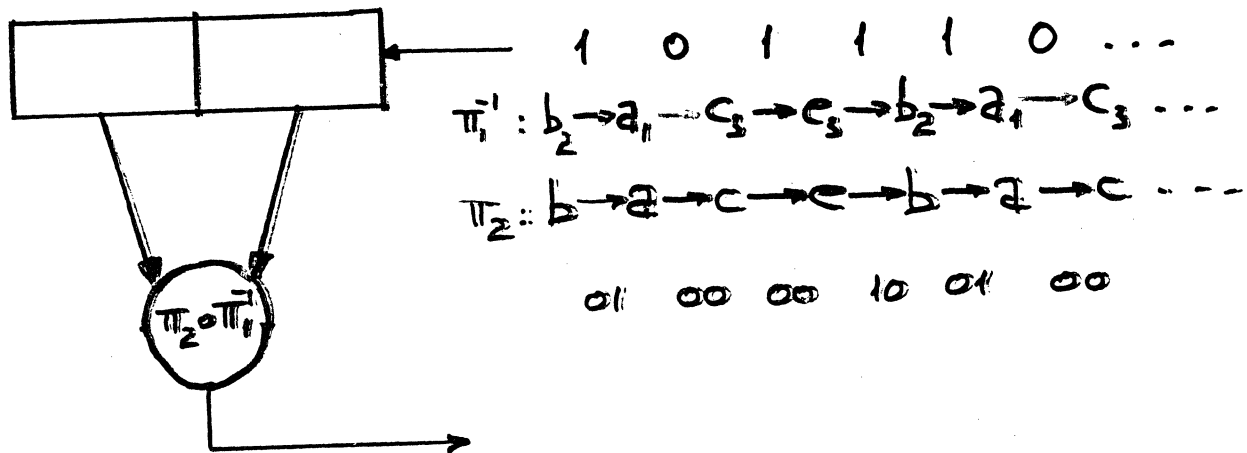 1 0 1 1 1 0 ...
π₁⁻¹: b₂ → a₁ → c₃ → e₃ → b₂ → a₁ → c₃ ...
π₂: b → a → c → e → b → a → c ...
01 00 00 10 01 00
π₂∘π₁⁻¹